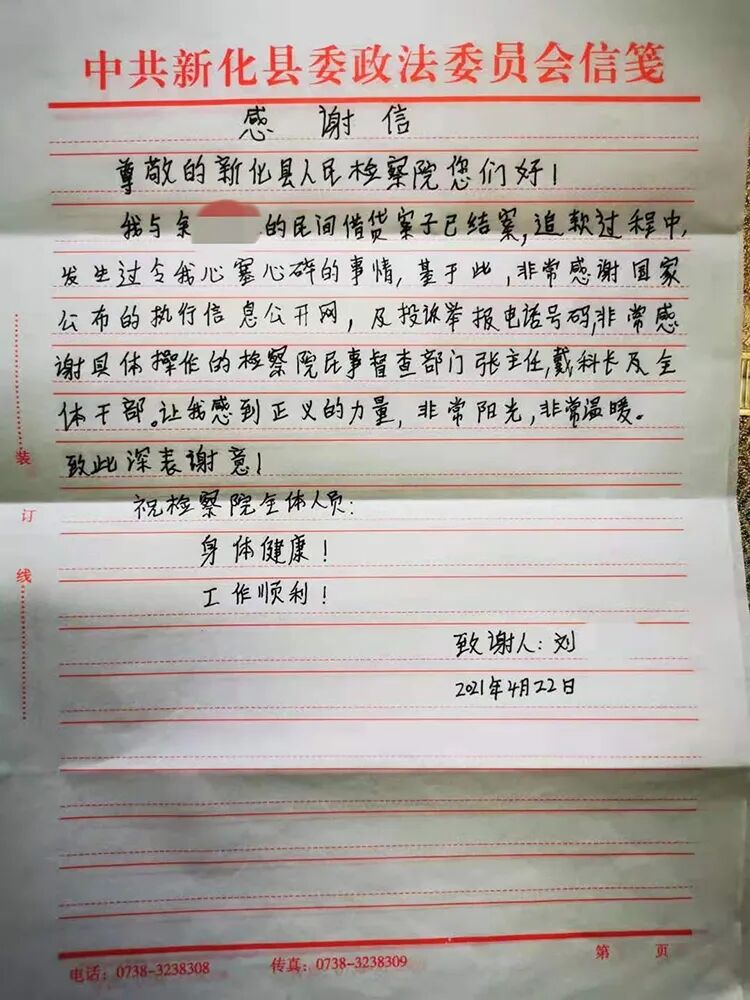 中共新化县委政法委员会信笺
感谢信
尊敬的新化县人民检察院您们好！
我与 的民间借贷案子已结案,追款过程中,
发生过令我心塞心碎的事情,基于此,非常感谢国家
公布的执行信息公开网，及投诉举报电话号码,非常感
谢具体操作的检察院民事督查部门张主任,戴科长及全
体干部。让我感到正义的力量，非常阳光,非常温暖。
致此深表谢意！
祝检察院全体人员：
身体健康！
工作顺利！
致谢人：刘
2021年4月22日
装
订
线
电话：0738-3238308 传真：0738-3238309 第 页